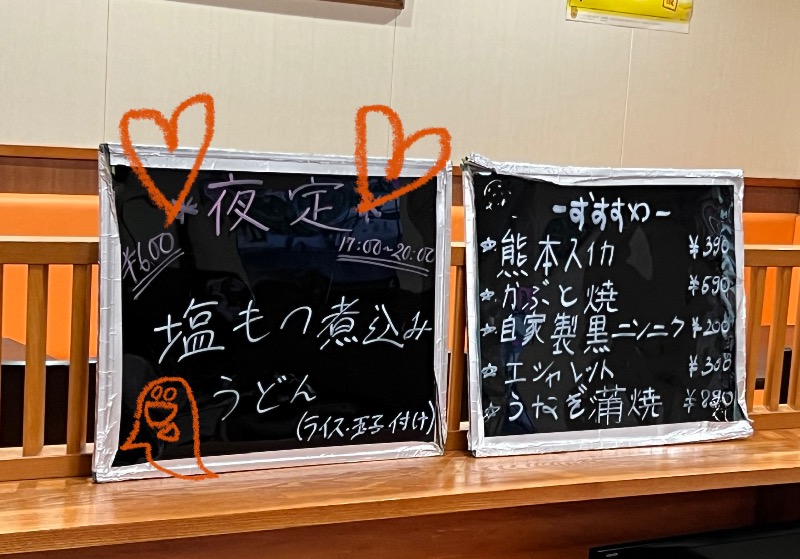 夜定
¥600
17:00~20:00
塩もつ煮込み
うどん
(ライス・玉子付け)
-すすすめ-
☆熊本スイカ ¥390
☆かぶと焼 ¥690
☆自家製黒ニンニク ¥200
☆エシャレット ¥300
☆うなぎ蒲焼 ¥880